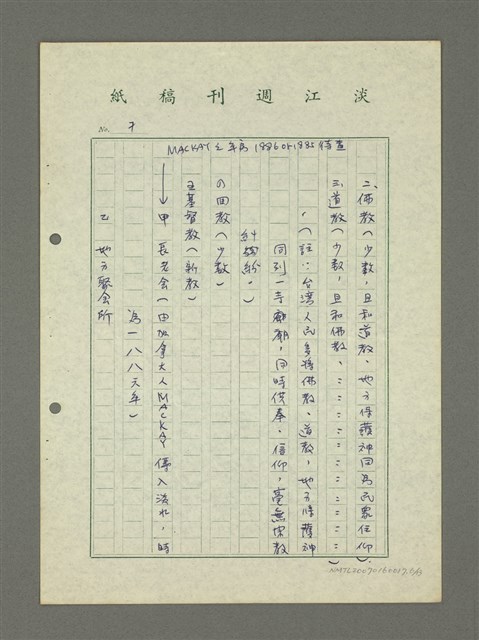 淡江週刊稿紙
No. 7
MACKAY之年爲1886or1885待查
二、佛教(少數,且和道教、地方保護神同爲民眾信仰)
三、道教(少數,且和佛教、〃〃〃〃〃〃〃〃〃)
(註:台湾人民多將佛教、道教,地方保護神
同列一寺廟廟,同時供奉、信仰,毫無宗教
糾紛。)
回教(少數)
五基督教(新教)
甲 長老会(由加拿大人MACKAY傳入淡水,時
爲一八八六年)
乙 地方聚会所